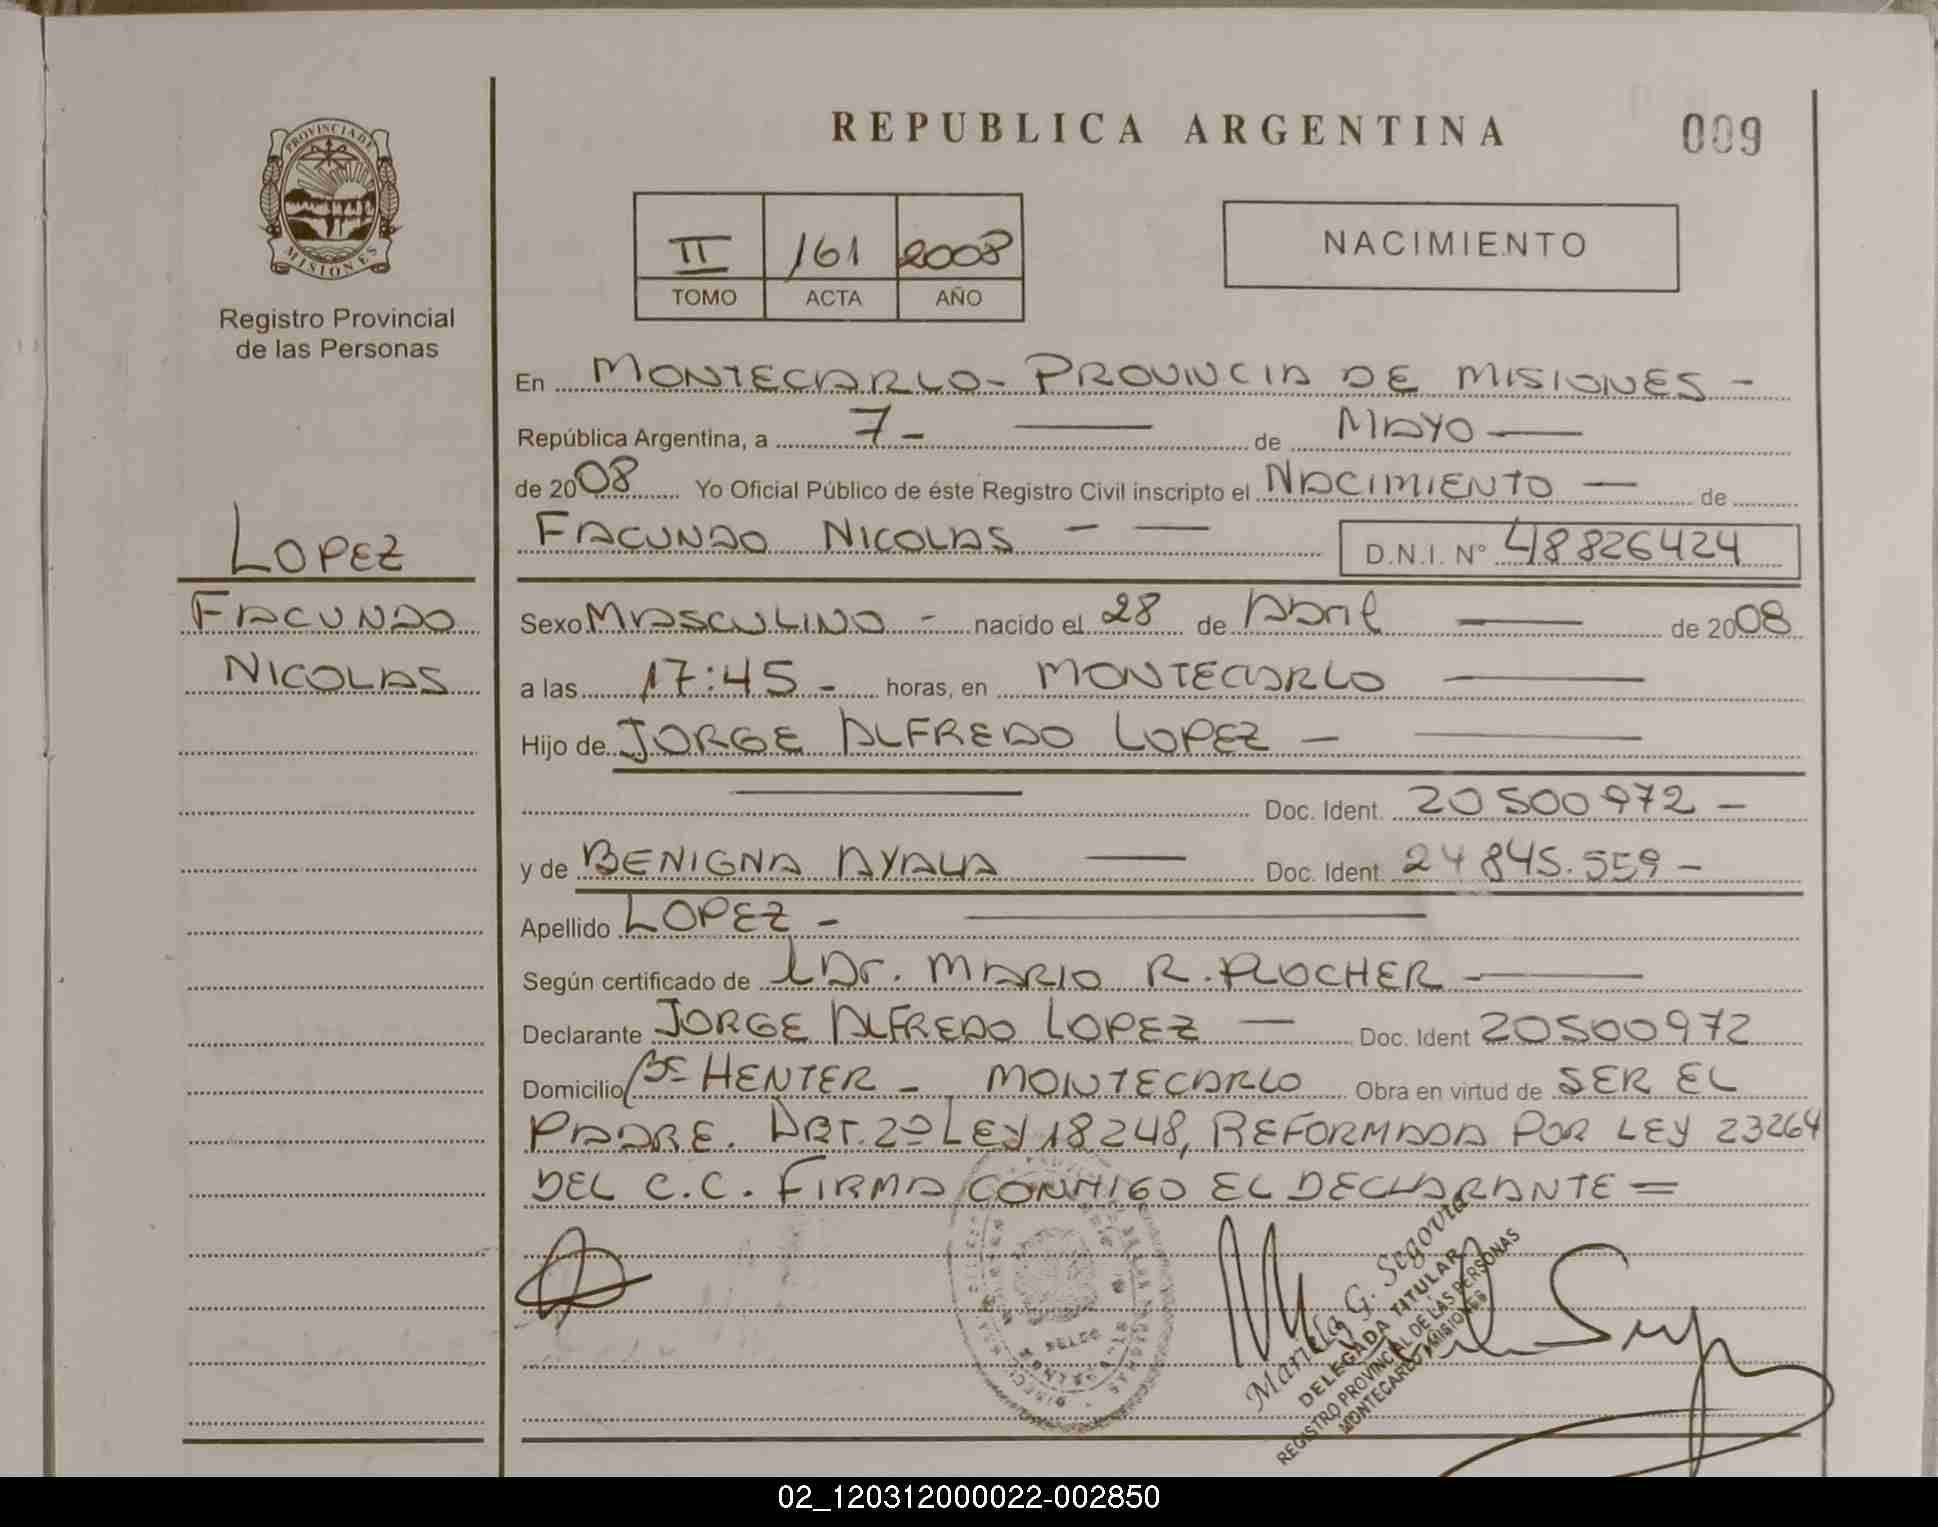 REPUBLICA ARGENTINA
009
PROVINCIA DE
MISIONES
Registro Provincial
de las Personas
II 161 2008
TOMO ACTA AÑO
NACIMIENTO
En MONTECARLO - PROVINCIA DE MISIONES -
República Argentina, a 7 - de MAYO
de 2008 Yo Oficial Público de éste Registro Civil inscripto el NACIMIENTO - de
FACUNDO NICOLAS - D.N.I. N° 48826424
LOPEZ
FACUNDO
NICOLAS
Sexo MASCULINO - nacido el 28 de Abril de 2008
a las 17:45 - horas, en MONTECARLO
Hijo de JORGE ALFREDO LOPEZ -
Doc. Ident. 20500972 -
y de BENIGNA AYALA Doc. Ident. 24845.559 -
Apellido LOPEZ -
Según certificado de Dr. MARIO R. PLOCHER
Declarante JORGE ALFREDO LOPEZ - Doc. Ident 20500972
Domicilio Bº HENTER - MONTECARLO Obra en virtud de SER EL
PADRE. ART. 2º LEY 18248, REFORMADA POR LEY 23264
DEL C.C. FIRMA CONMIGO EL DECLARANTE =
Mariela G. Segovia
DELEGADA TITULAR
REGISTRO PROVINCIAL DE LAS PERSONAS
MONTECARLO MISIONES
02_120312000022-002850